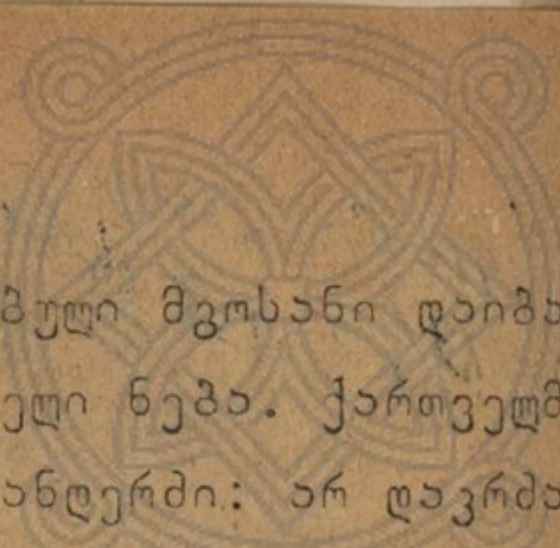 ბული მგოსანი დაიბა
ელი ნება. ქართველმ
ანდერძი: არ დაკრძა